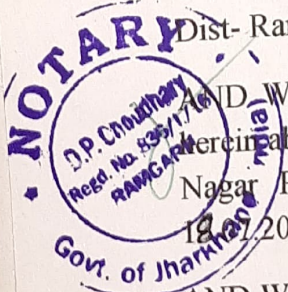 NOTARY
D.P. Choudhary
Regd. No. 835/1/16
RAMGARH
Govt. of Jharkhand
Dist- Ra
AND W
herein
Nagar